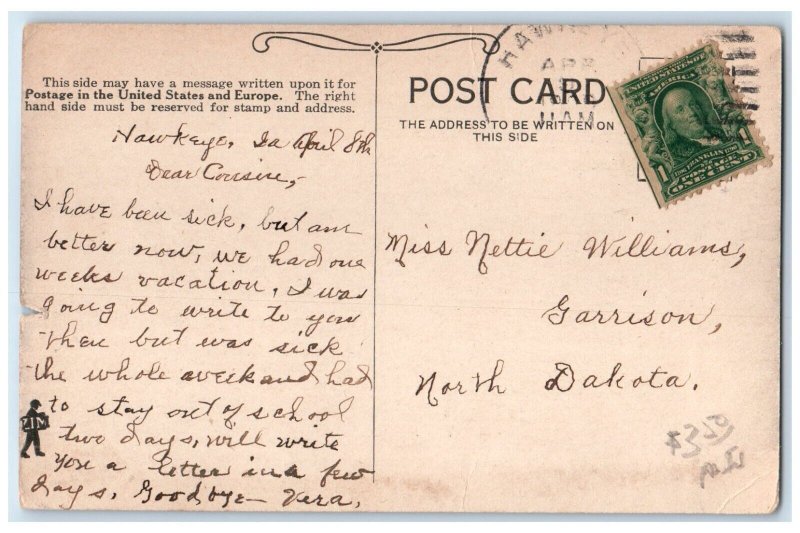 This side may have a message written upon it for
Postage in the United States and Europe. The right
hand side must be reserved for stamp and address.
Hawkeye, Ia April 8th
Dear Cousin,-
I have been sick, but am
better now, we had one
weeks vacation, I was
going to write to you
then but was sick
the whole week and had
to stay out of school
two days, will write
you a letter in a few
days. Goodbye- Vera.
ZIM
POST CARD
THE ADDRESS TO BE WRITTEN ON
THIS SIDE
HAWKEY
APR
11AM
UNITED STATES OF
AMERICA
1 FRANKLIN 1
POSTAGE
ONE CENT
Miss Nettie Williams,
Garrison,
North Dakota.